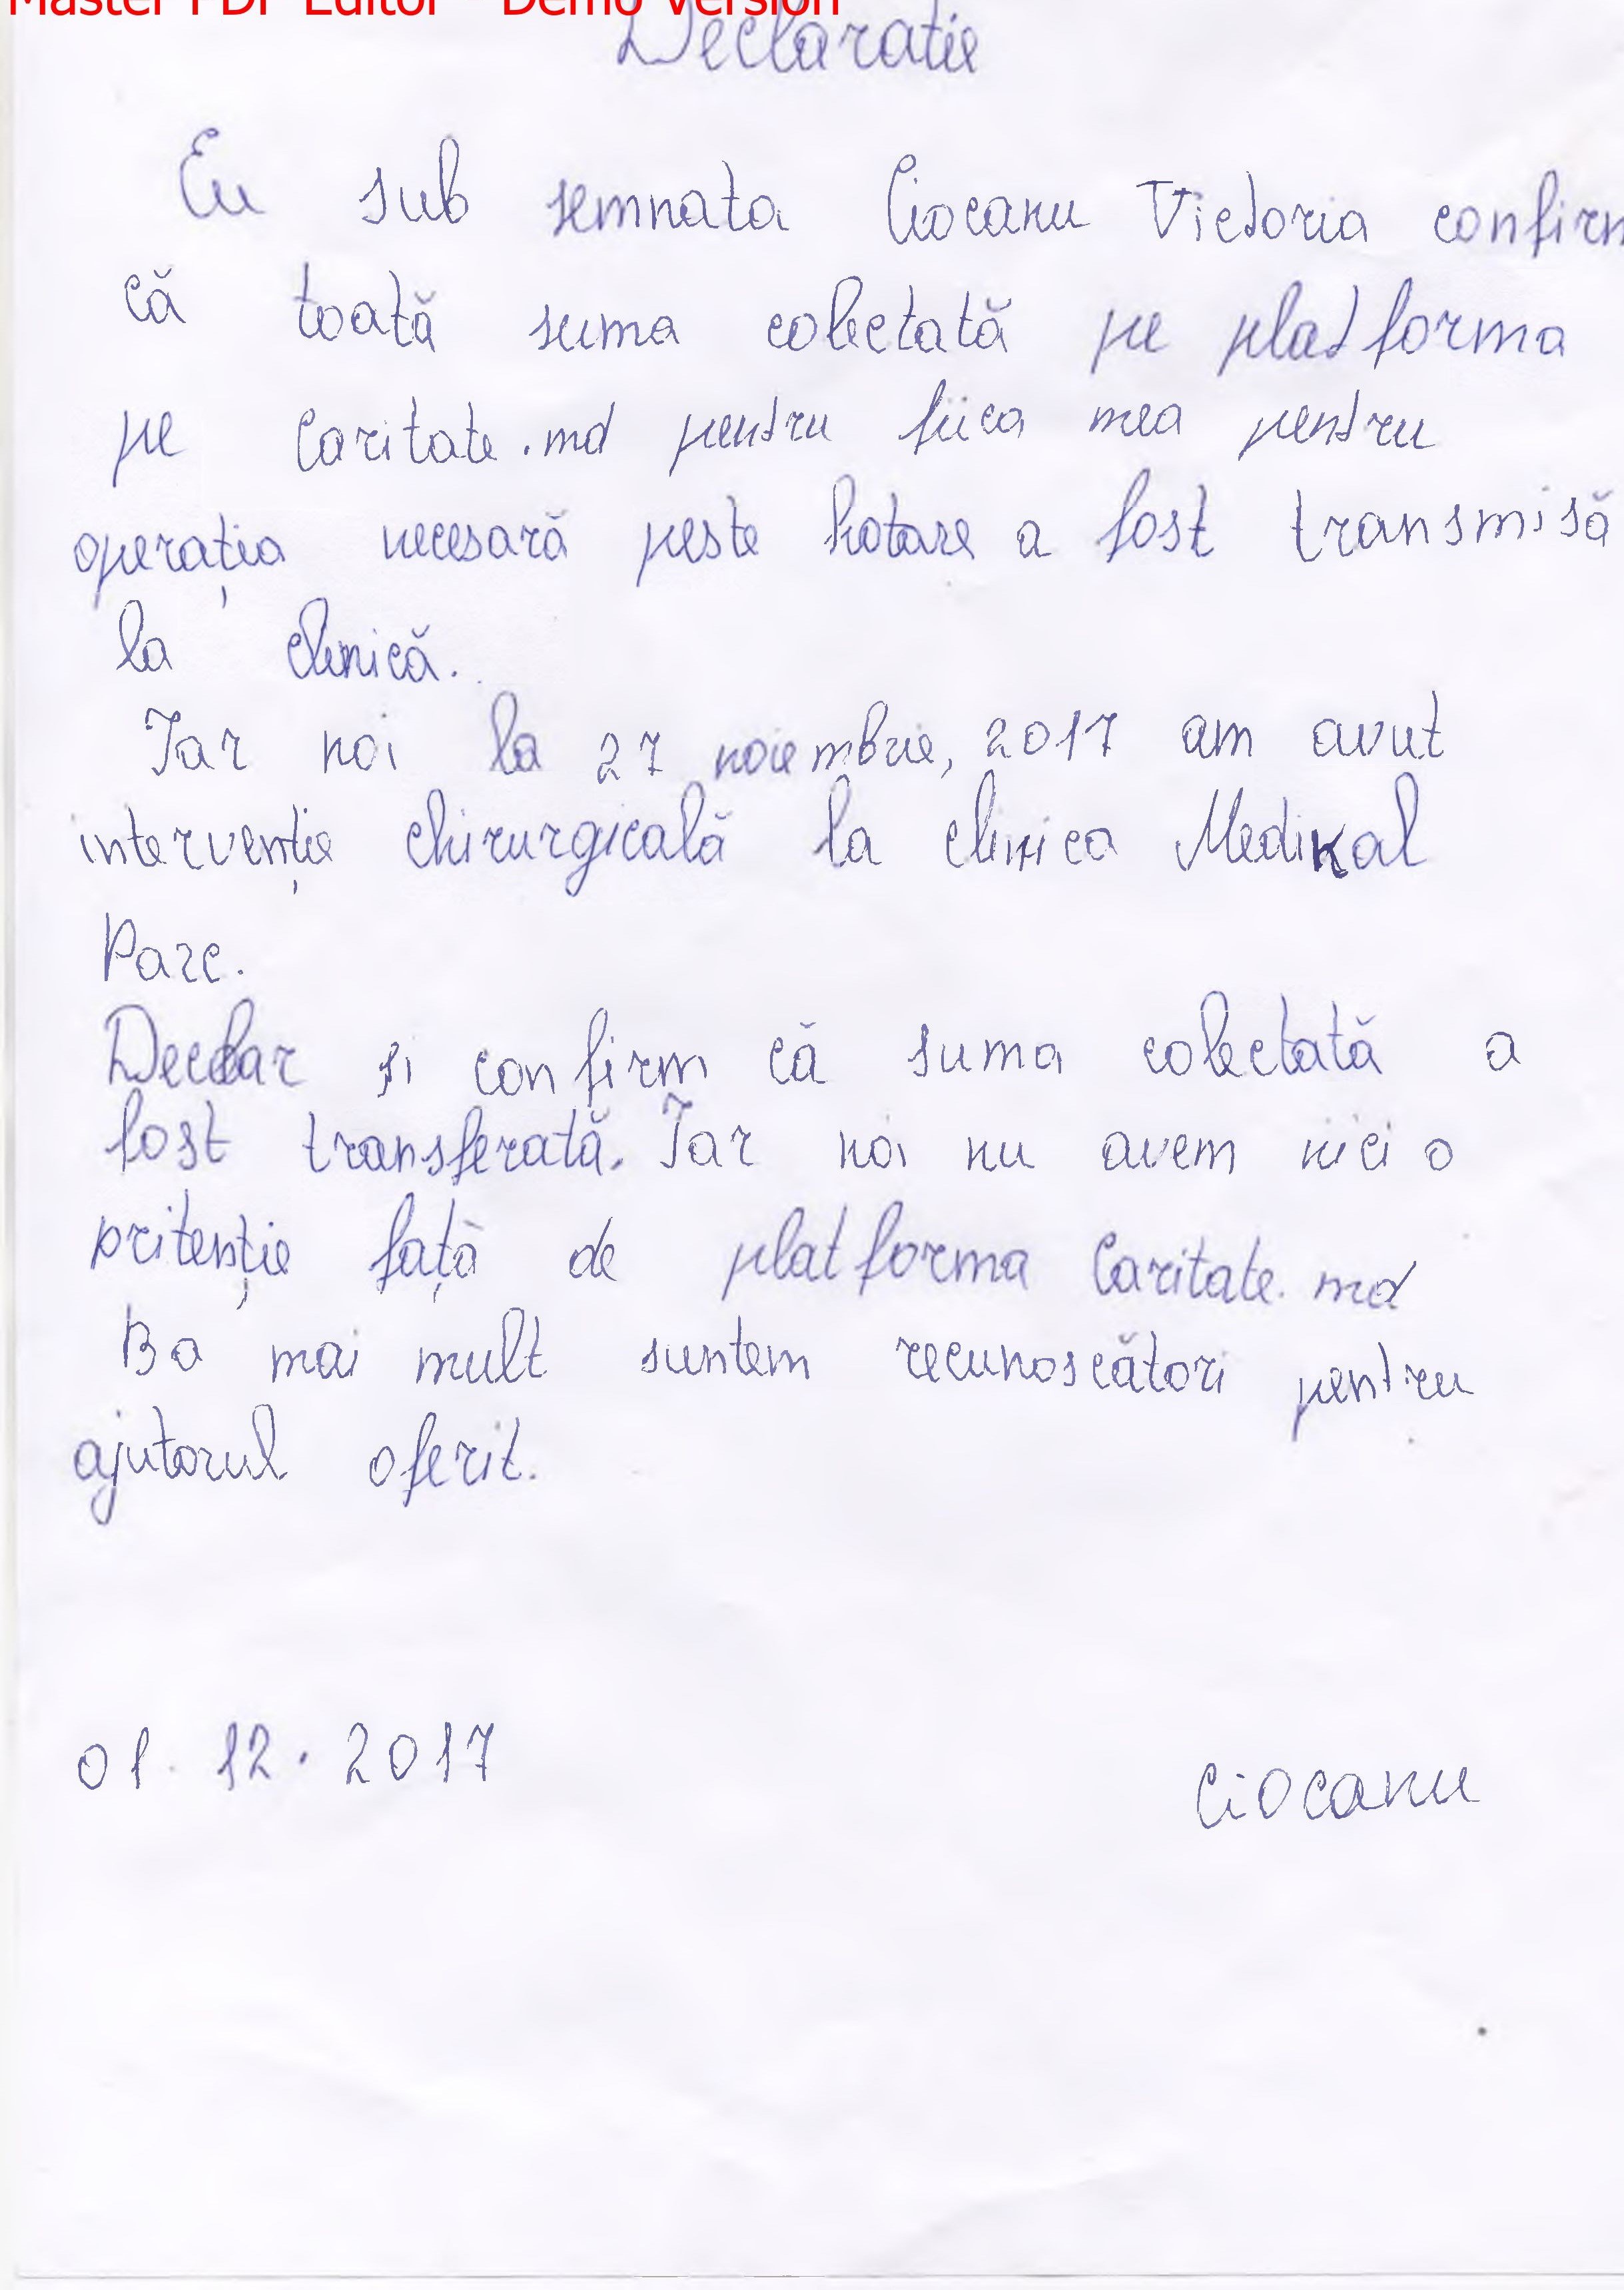 Master PDF Editor - Demo Version
Declaratie
Eu sub semnata Ciocanu Victoria confirm
că toată suma colectată pe platforma
pe Caritate.md pentru fiica mea pentru
operația necesară peste hotare a fost transmisă
la clinică.
Iar noi la 27 noiembrie, 2017 am avut
intervenție chirurgicală la clinica Medikal
Parc.
Declar si confirm că suma colectată a
fost transferată. Iar noi nu avem nici o
pritenție față de platforma Caritate.md
Ba mai mult suntem recunoscători pentru
ajutorul oferit.
01.12.2017
Ciocanu